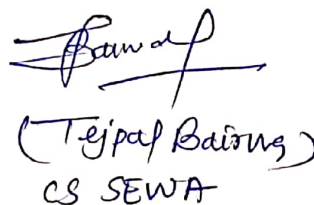 (Tejpal Bairwa)
CS SEWA